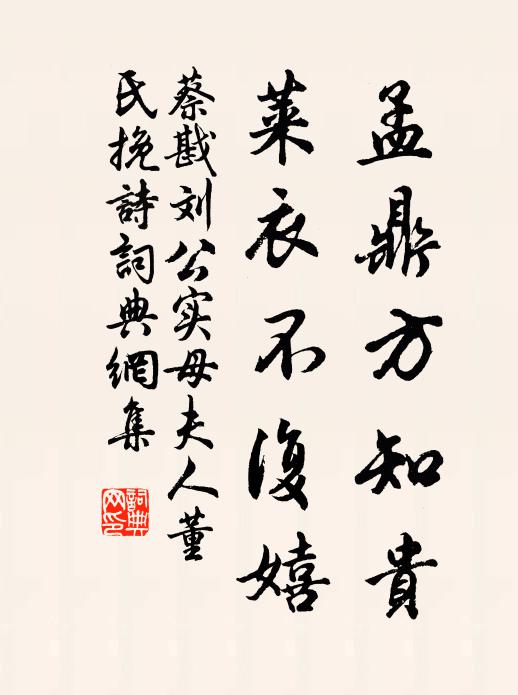 孟鼎方知貴
萊衣不復嬉
蔡戡刘公实母夫人董
氏挽詩詞典網集
詞典
网印